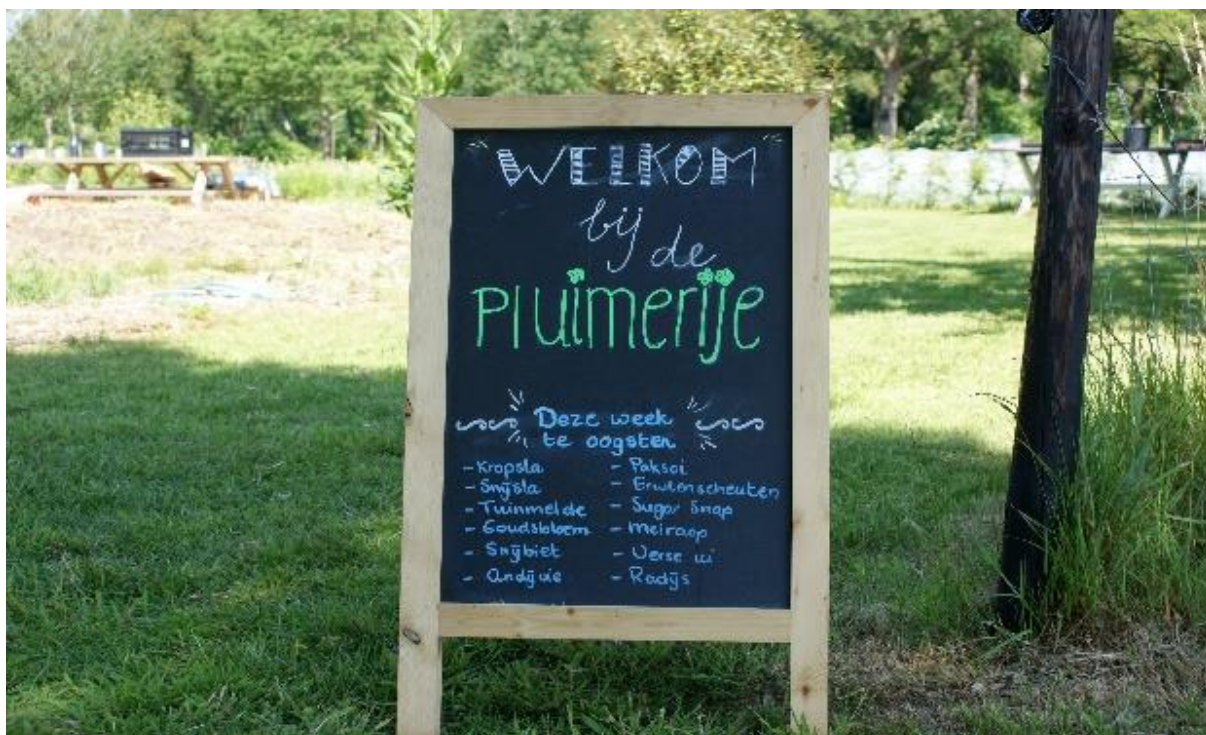 WELKOM
bij de
Pluimerije
Deze week
te oogsten
- Kropsla
- Snijsla
- Tuinmelde
- Goudsbloem
- Snijbiet
- Andijvie
- Paksoi
- Erwtenscheuten
- Sugar Snap
- Meiraap
- Verse ui
- Radijs